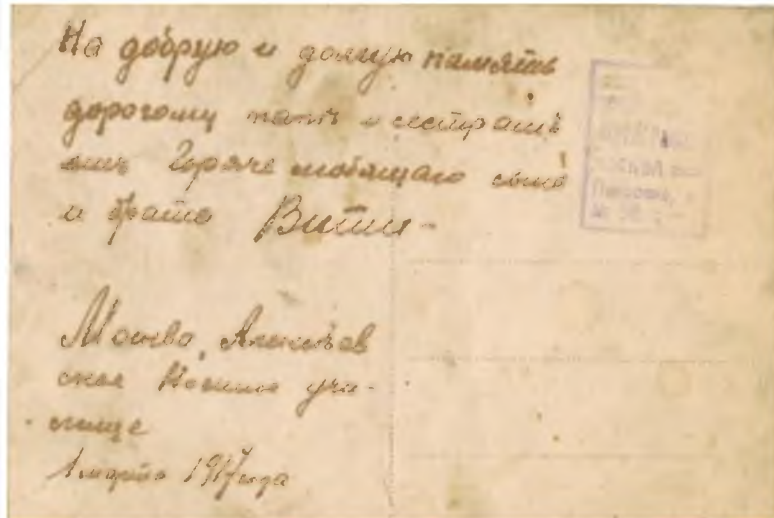 На добрую и долгую память
дорогому папѣ и сестрамъ
отъ Горяче любящаго сына
и брата Вити-
Москва, Алексѣев
ское Военное учи-
лище
1 марта 1917 года